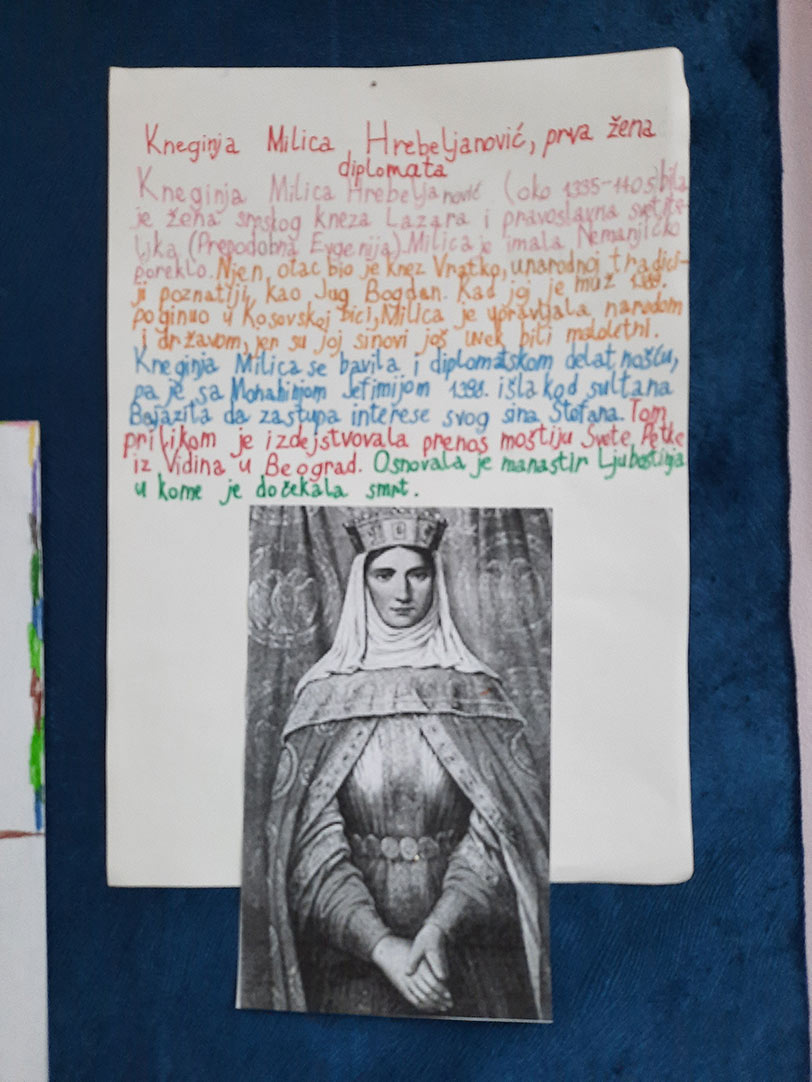 Kneginja Milica Hrebeljanović, prva žena
diplomata
Kneginja Milica Hrebeljanović (oko 1335-1405) bila
je žena srpskog kneza Lazara i pravoslavna svetite-
ljka (Prepodobna Evgenija). Milica je imala Nemanjićko
poreklo. Njen, otac bio je knez Vratko, u narodnoj tradici-
ji poznatiji kao Jug Bogdan. Kad joj je muž 1389.
poginuo u Kosovskoj bici, Milica je upravljala narodom
i državom, jer su joj sinovi još uvek bili maloletni.
Kneginja Milica se bavila i diplomatskom delatnošću,
pa je sa Monahinjom Jefimijom 1398. išla kod sultana
Bajazita da zastupa interese svog sina Stefana. Tom
prilikom je izdejstvovala prenos moštiju Svete Petke
iz Vidina u Beograd. Osnovala je manastir Ljubostinja
u kome je dočekala smrt.